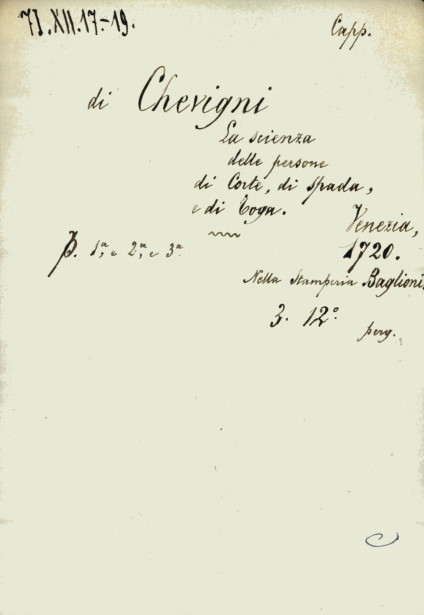 71.XII.17.-19.
Capp.
di Chevigni
La scienza
delle persone
di Corte, di Spada,
e di Toga.
Venezia,
P. 1ª, e 2ª, e 3ª
1720.
Nella Stamperia Baglioni.
3. 12º
perg.